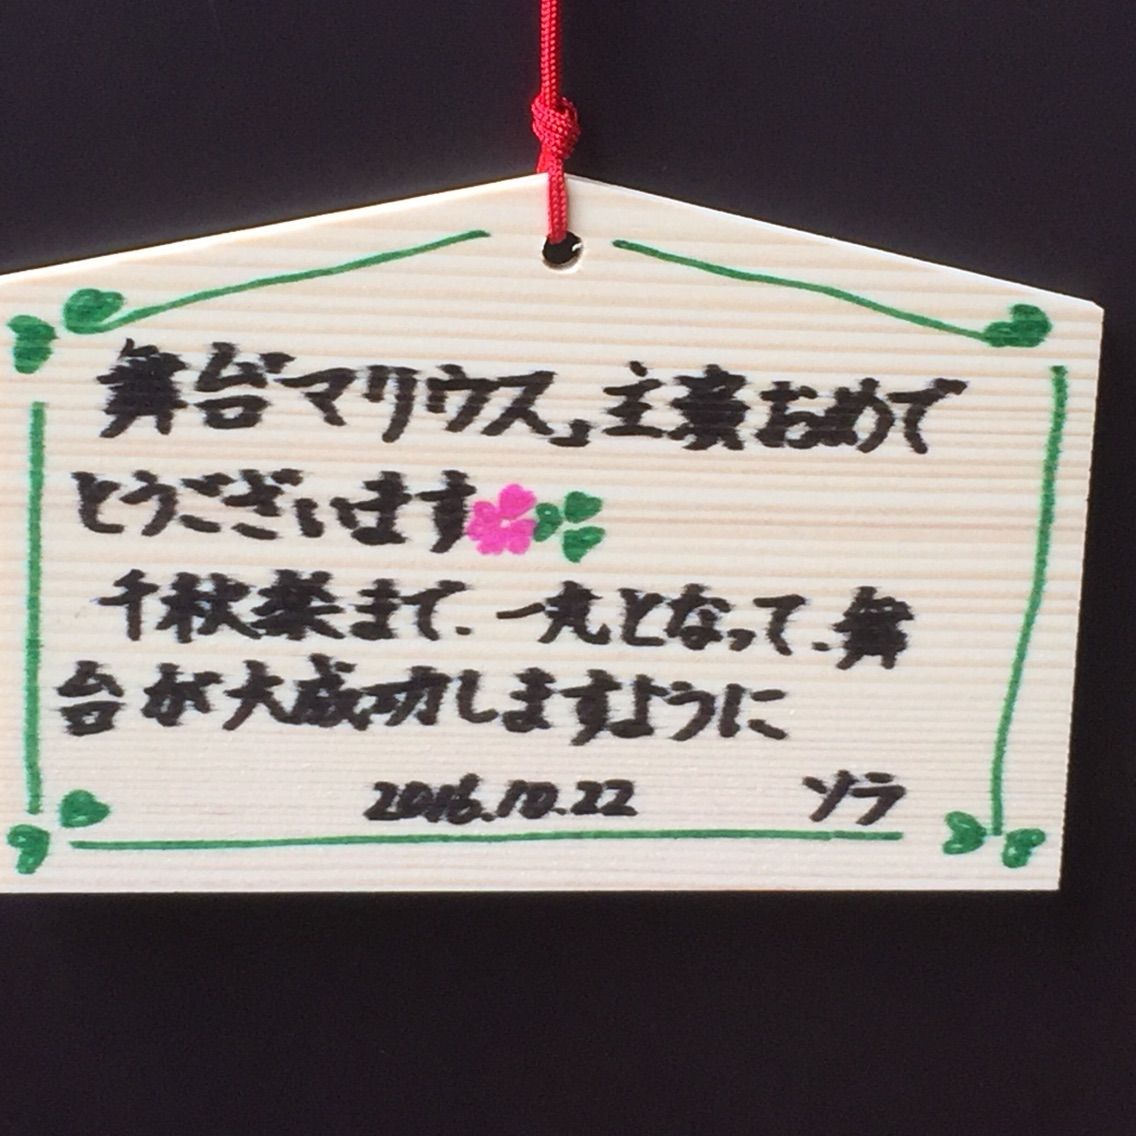 舞台「マリウス」主演おめで
とうございます
千秋楽まで、一丸となって、舞
台が大成功しますように
2016.10.22 ソラ